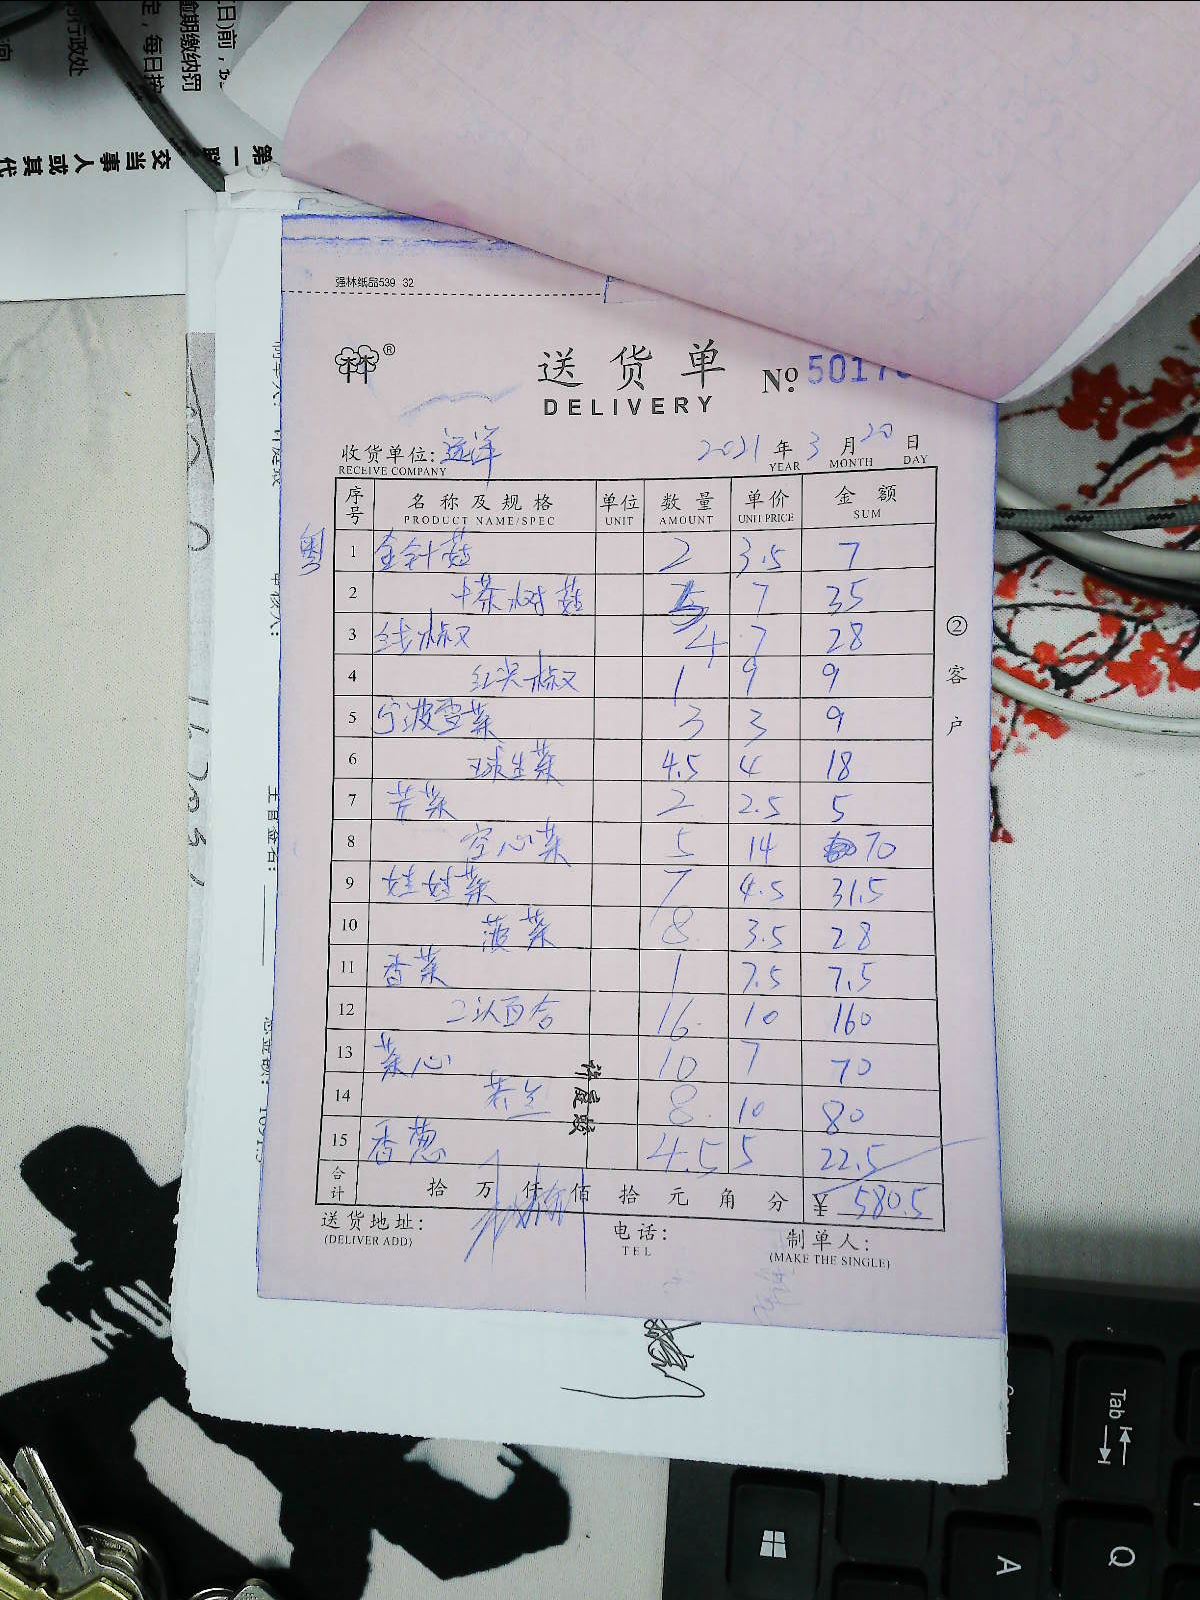 强林纸品539 32
送货单
DELIVERY
№ 5017
收货单位: 远洋
RECEIVE COMPANY
2021 年 3 月 20 日
YEAR MONTH DAY
序号 名称及规格 单位 数量 单价 金额
PRODUCT NAME/SPEC UNIT AMOUNT UNIT PRICE SUM
粤
1 金针菇 2 3.5 7
2 干茶树菇 5 7 35
3 线椒 4 7 28
4 红尖椒 1 9 9
5 宁波雪菜 3 3 9
6 球生菜 4.5 4 18
7 芹菜 2 2.5 5
8 空心菜 5 14 70
9 娃娃菜 7 4.5 31.5
10 菠菜 8 3.5 28
11 香菜 1 7.5 7.5
12 百合 16 10 160
13 菜心 10 7 70
14 8 10 80
15 香葱 4.5 5 22.5
合计 拾 万 仟 佰 拾 元 角 分 ¥ 580.5
送货地址: 电话: 制单人:
(DELIVER ADD) TEL (MAKE THE SINGLE)
② 客户
第一联 交当事人或其代
逾期缴纳罚
Tab
A
Q